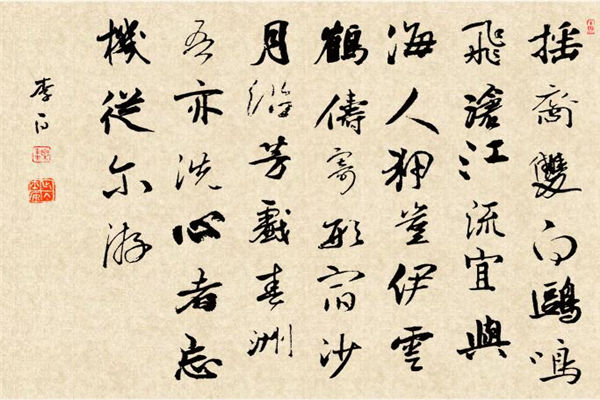 搖裔雙白鷗鳴
飛滄江流宜與
海人狎豈伊雲
鶴儔寄形宿沙
月芳戲春洲
吾亦洗心者忘
機從尔游
李白